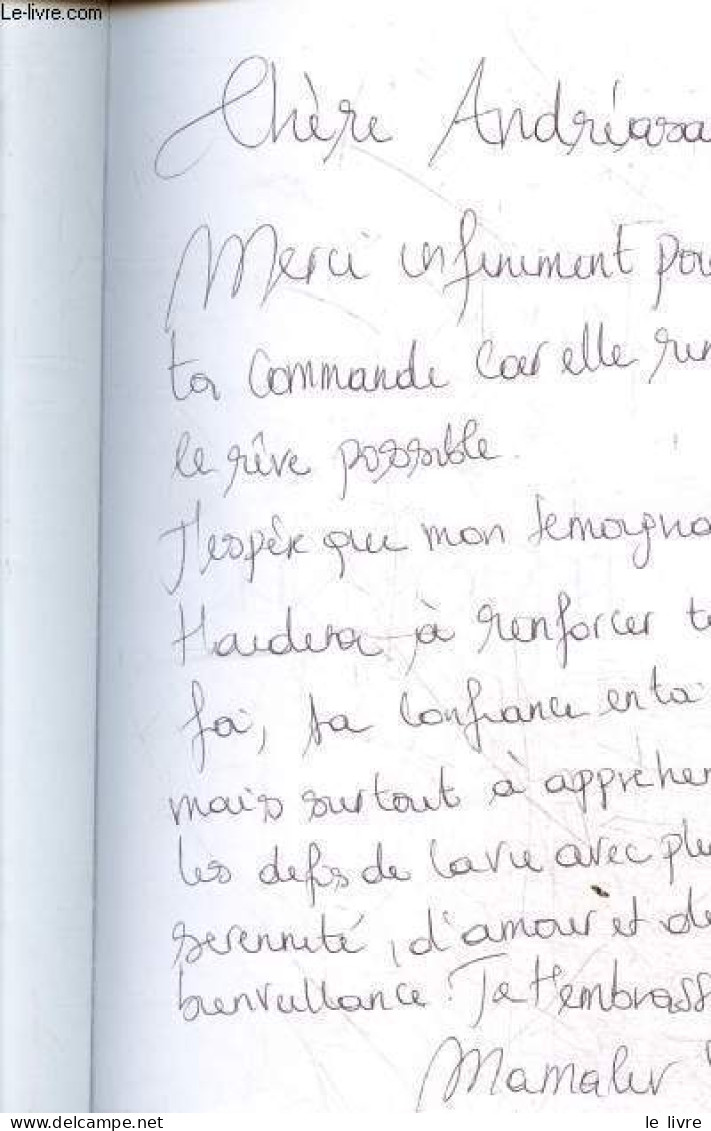 Le-livre.com
Chère Andréasa
Merci infiniment pou
ta commande car elle ren
le rêve possible.
J'espère que mon temoigna
t'aidera à renforcer t
foi, ta confiance en toi
mais surtout à apprehen
les defis de la vie avec plu
serennité, d'amour et de
bienveillance. Je t'embrass
le livre